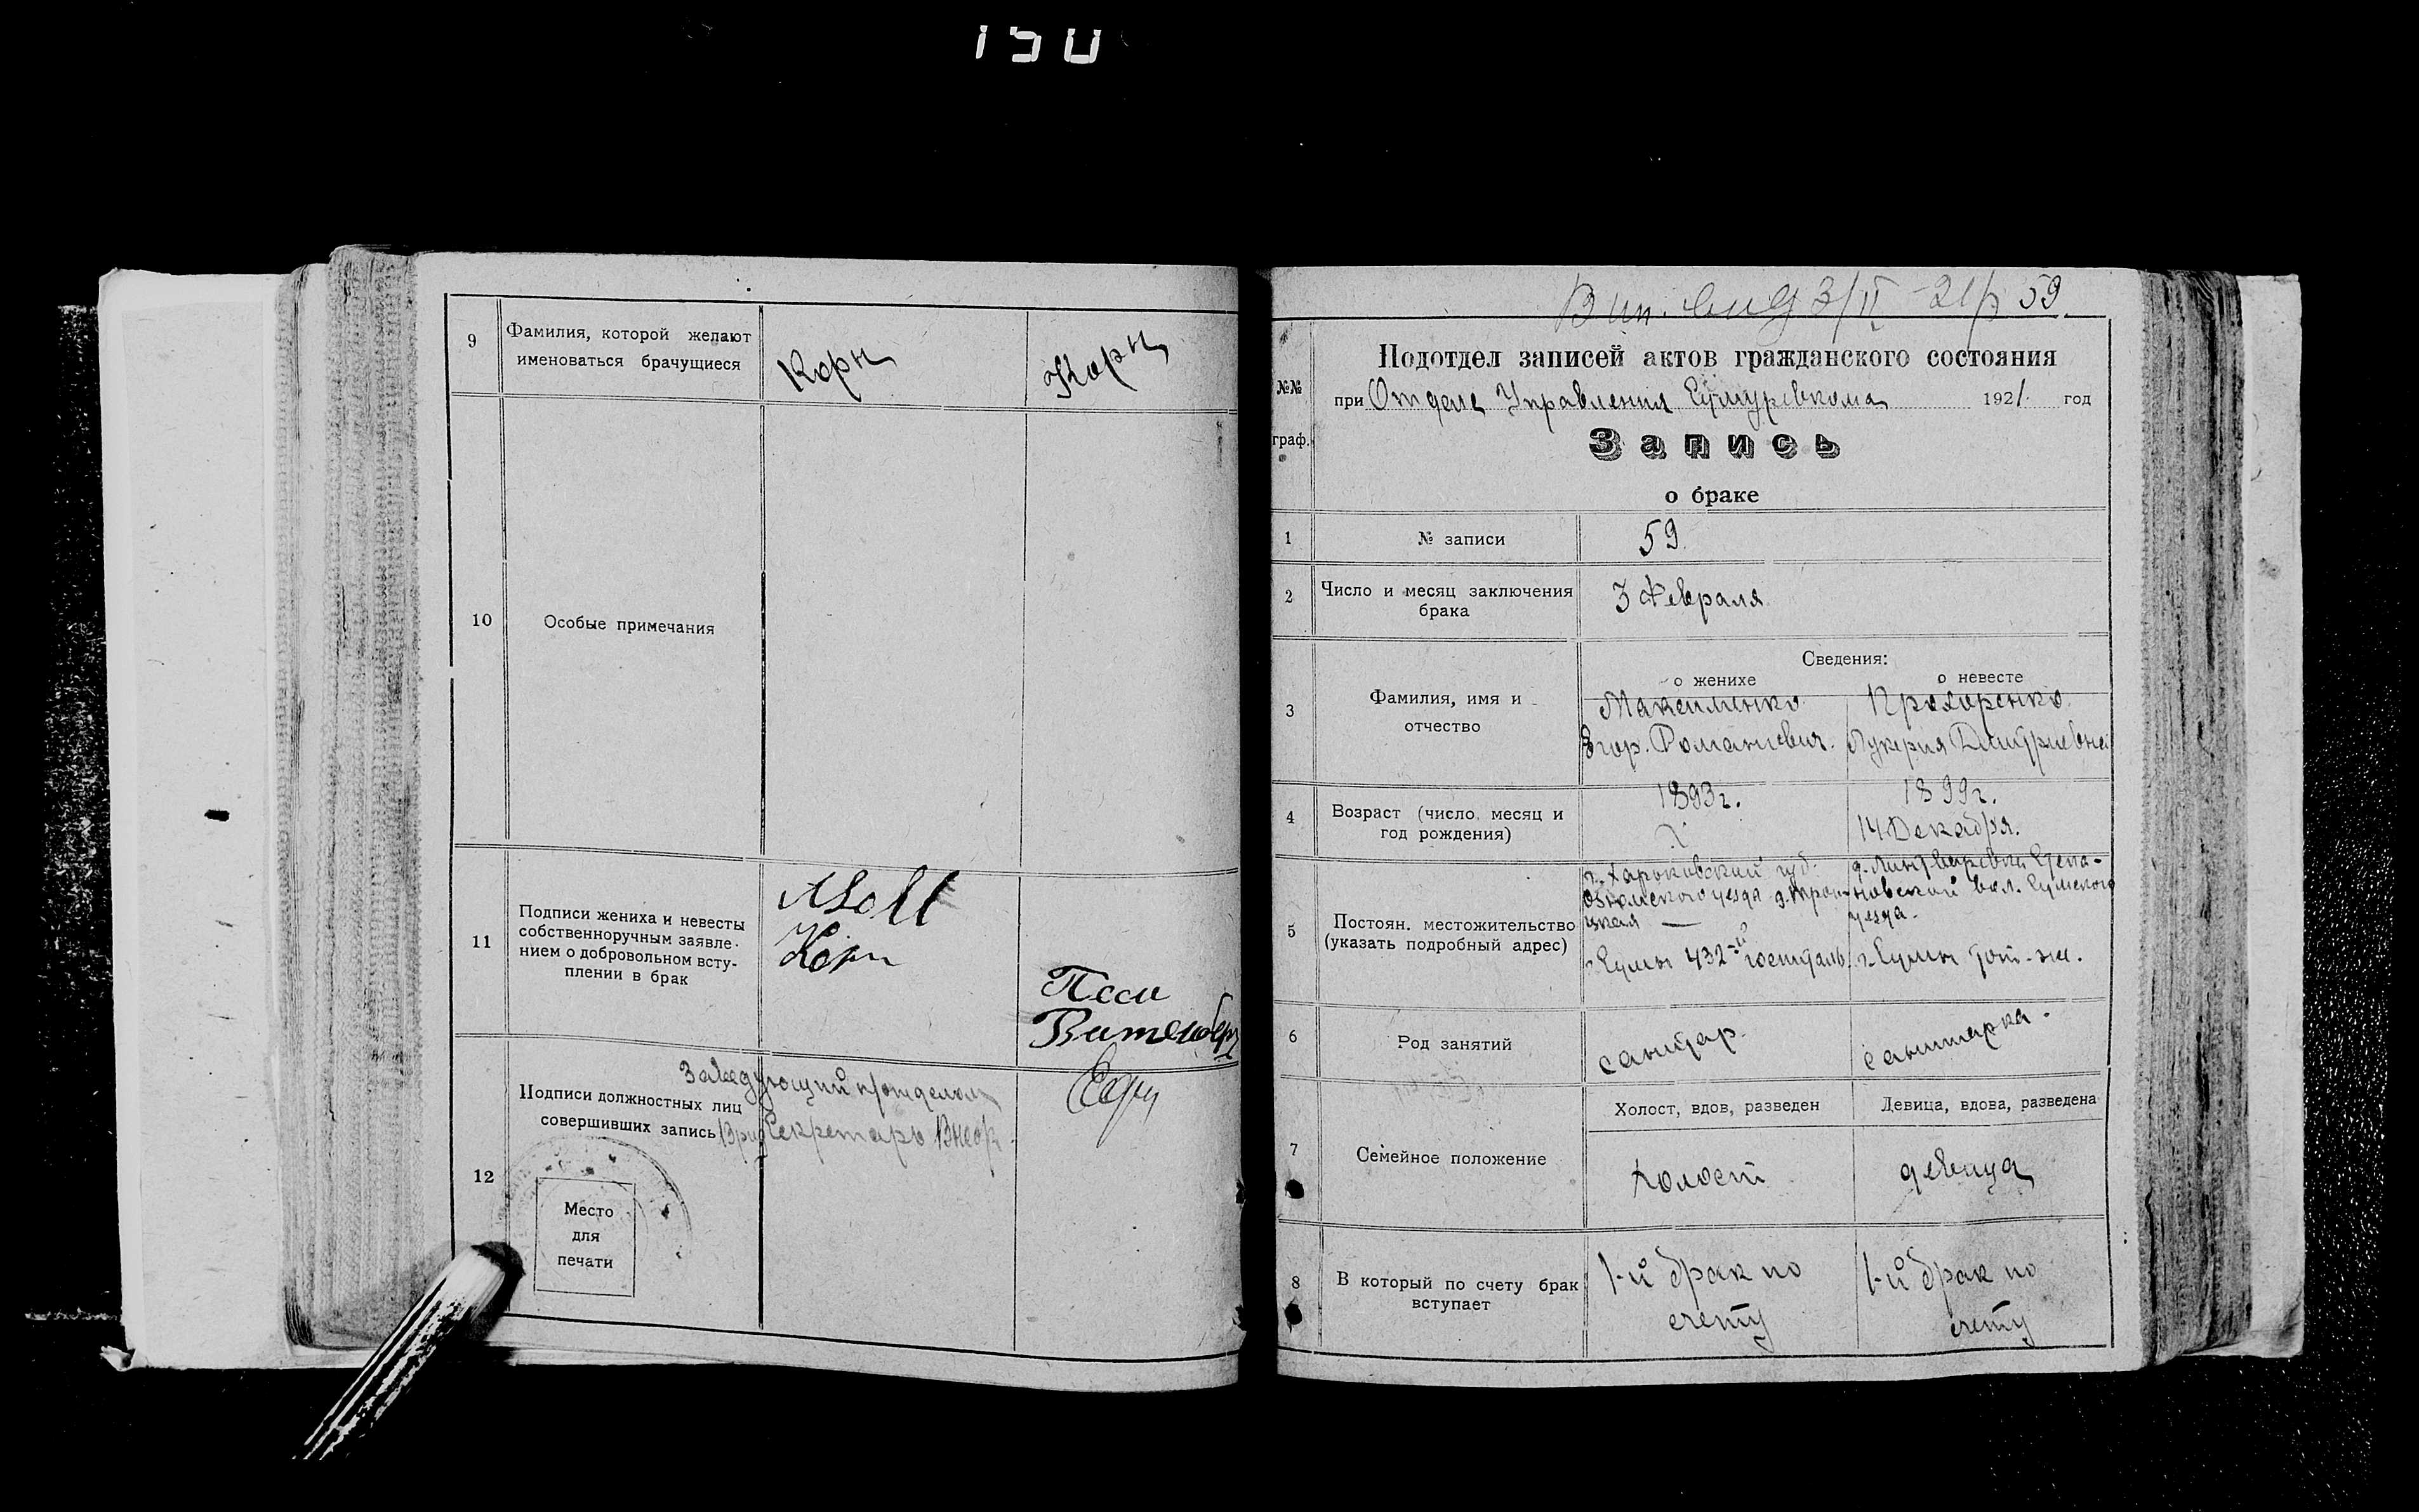 150
9
Фамилия, которой желают
именоваться брачущиеся
Корн
Корн
10
Особые примечания
11
Подписи жениха и невесты
собственноручным заявле-
нием о добровольном всту-
плении в брак
Корн
Песи
Витенберг
12
Подписи должностных лиц
совершивших запись
Заведующий п/отделом
Секретарь
Место
для
печати
3/II-21 59
№№
граф.
Подотдел записей актов гражданского состояния
при Отделе Управления Сумуревкома 1921 год
Запись
о браке
1
№ записи
59
2
Число и месяц заключения
брака
3 Февраля
3
Фамилия, имя и
отчество
Сведения:
о женихе
о невесте
Максименко
Егор. Романович.
Прохоренко
Лукерия Дмитриевна
4
Возраст (число, месяц и
год рождения)
1893г.
1899г.
14 Декабря.
5
Постоян. местожительство
(указать подробный адрес)
Харьковской губ.
уезда д. Трои-
цкая —
г. Сумы 432-й госпиталь
вол. Сумского
уезда.
г. Сумы
6
Род занятий
санитар.
санитарка.
7
Семейное положение
Холост, вдов, разведен
Девица, вдова, разведена
холост
девица
8
В который по счету брак
вступает
1-й брак по
счету
1-й брак по
счету